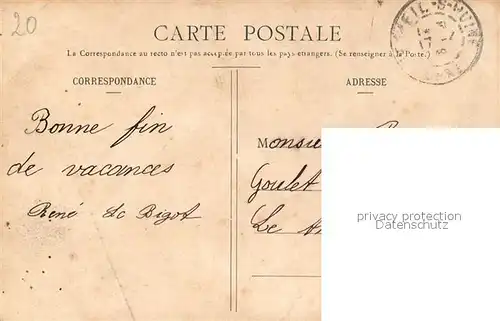 20
CARTE POSTALE
La Correspondance au recto n'est pas acceptée par tous les pays étrangers. (Se renseigner à la Poste.)
CORRESPONDANCE
ADRESSE
Bonne fin
de vacances
René Le Bigot
Goulet
Le
privacy protection
Datenschutz